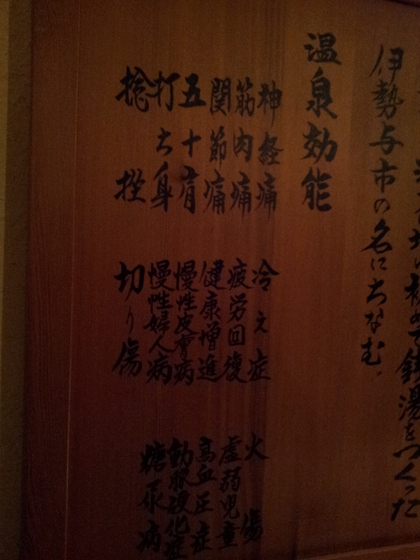 地に初めて銭湯をつくった
伊勢与市の名にちなむ。
温泉効能
神経痛 冷え症 火傷
筋肉痛 疲労回復 虚弱児童
関節痛 健康増進 高血圧症
五十肩 慢性皮膚病 動脈硬化症
打ち身 慢性婦人病 糖尿病
捻挫 切り傷